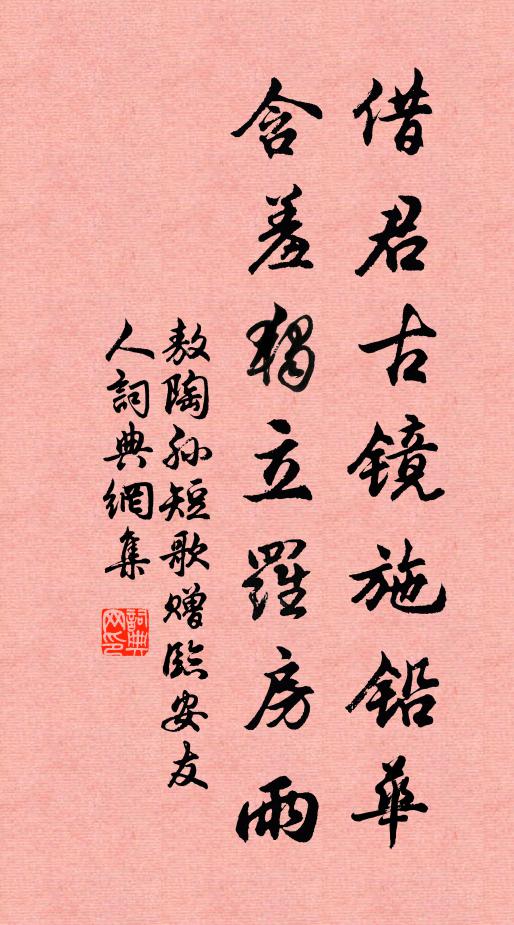 借君古镜施铅華
含羞獨立羅房雨
敖陶孙短歌赠臨安友
人詞典網集
詞典網印